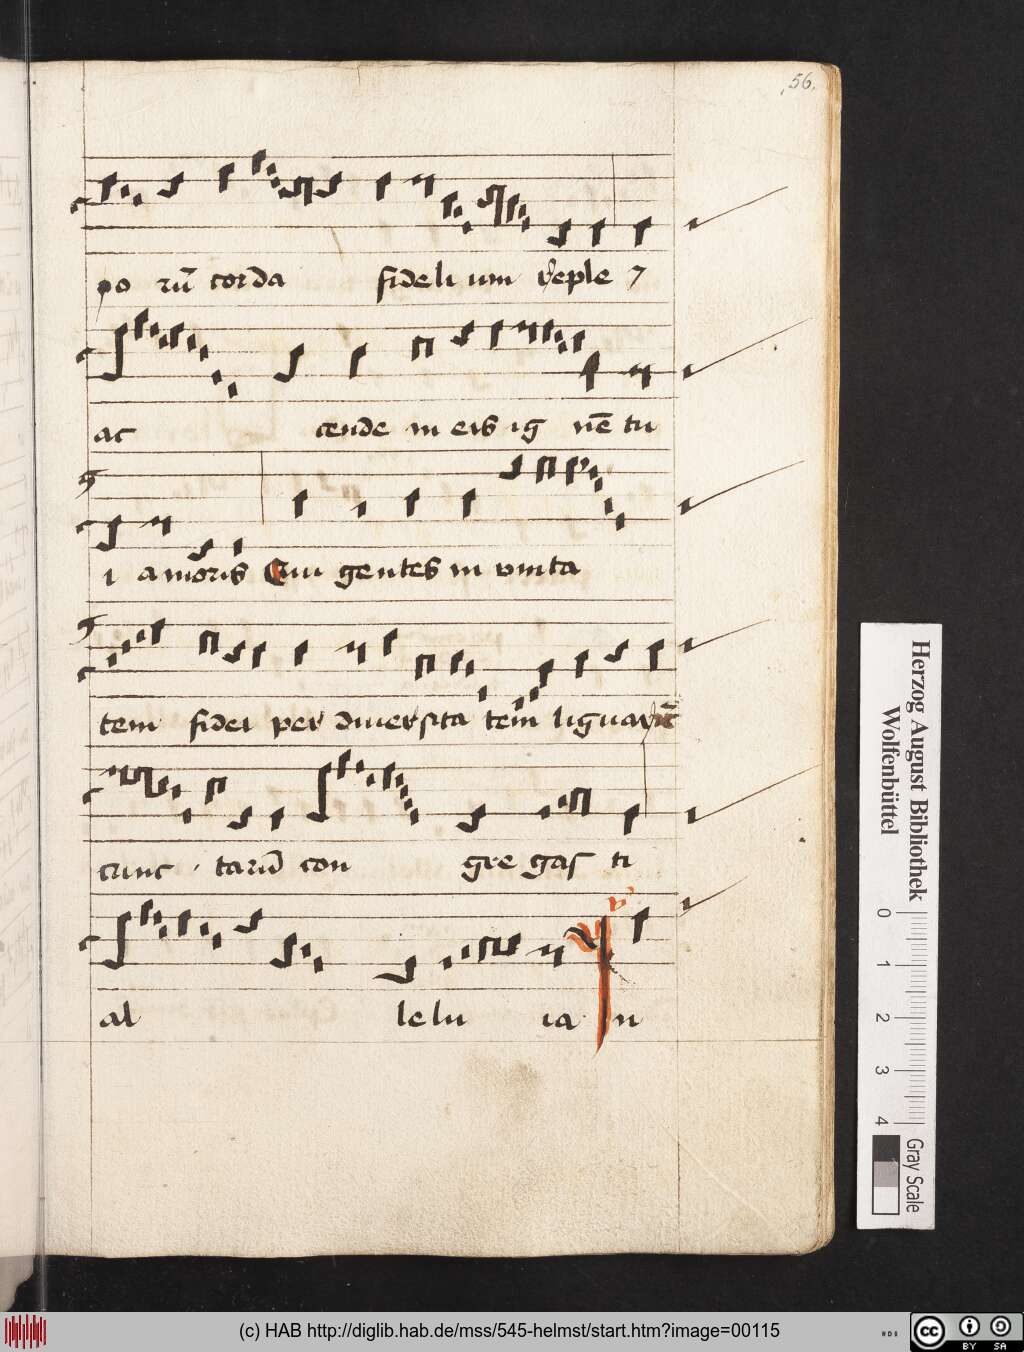 56.
po rū corda fideli um Reple 7
ac cende in eis ig nē tu
i amoris Cui gentes in vnita
tem fidei per diuersita tem liguarū
cunc tarū con gre gas ti
al lelu ia v n
Herzog August Bibliothek
Wolfenbüttel
0 1 2 3 4
Gray Scale
(c) HAB http://diglib.hab.de/mss/545-helmst/start.htm?image=00115
cc BY SA